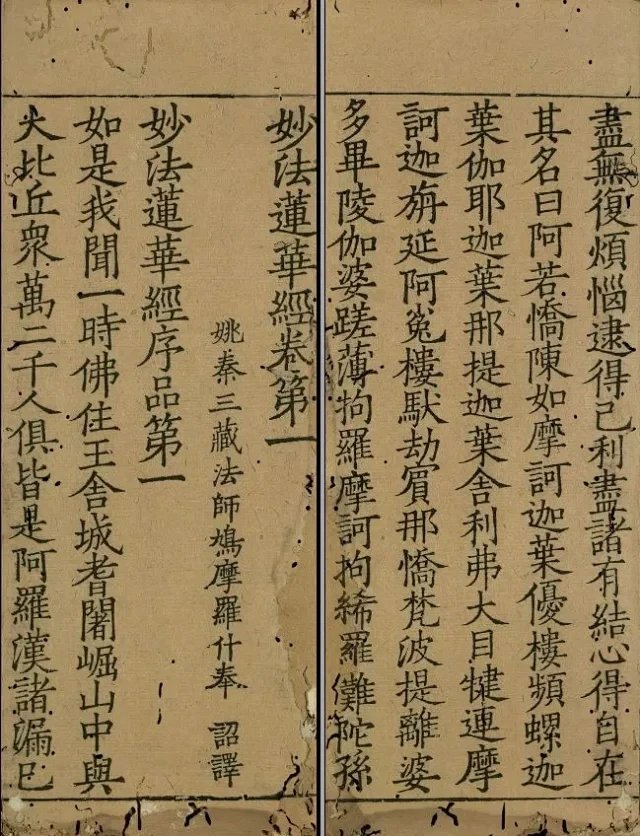 妙法蓮華經卷第一
姚秦三藏法師鳩摩羅什奉 詔譯
妙法蓮華經序品第一
如是我聞一時佛住王舍城耆闍崛山中與
大比丘衆萬二千人俱皆是阿羅漢諸漏已
盡無復煩惱逮得己利盡諸有結心得自在
其名曰阿若憍陳如摩訶迦葉優樓頻螺迦
葉伽耶迦葉那提迦葉舍利弗大目犍連摩
訶迦旃延阿㝹樓馱劫賓那憍梵波提離婆
多畢陵伽婆蹉薄拘羅摩訶拘絺羅難陀孫